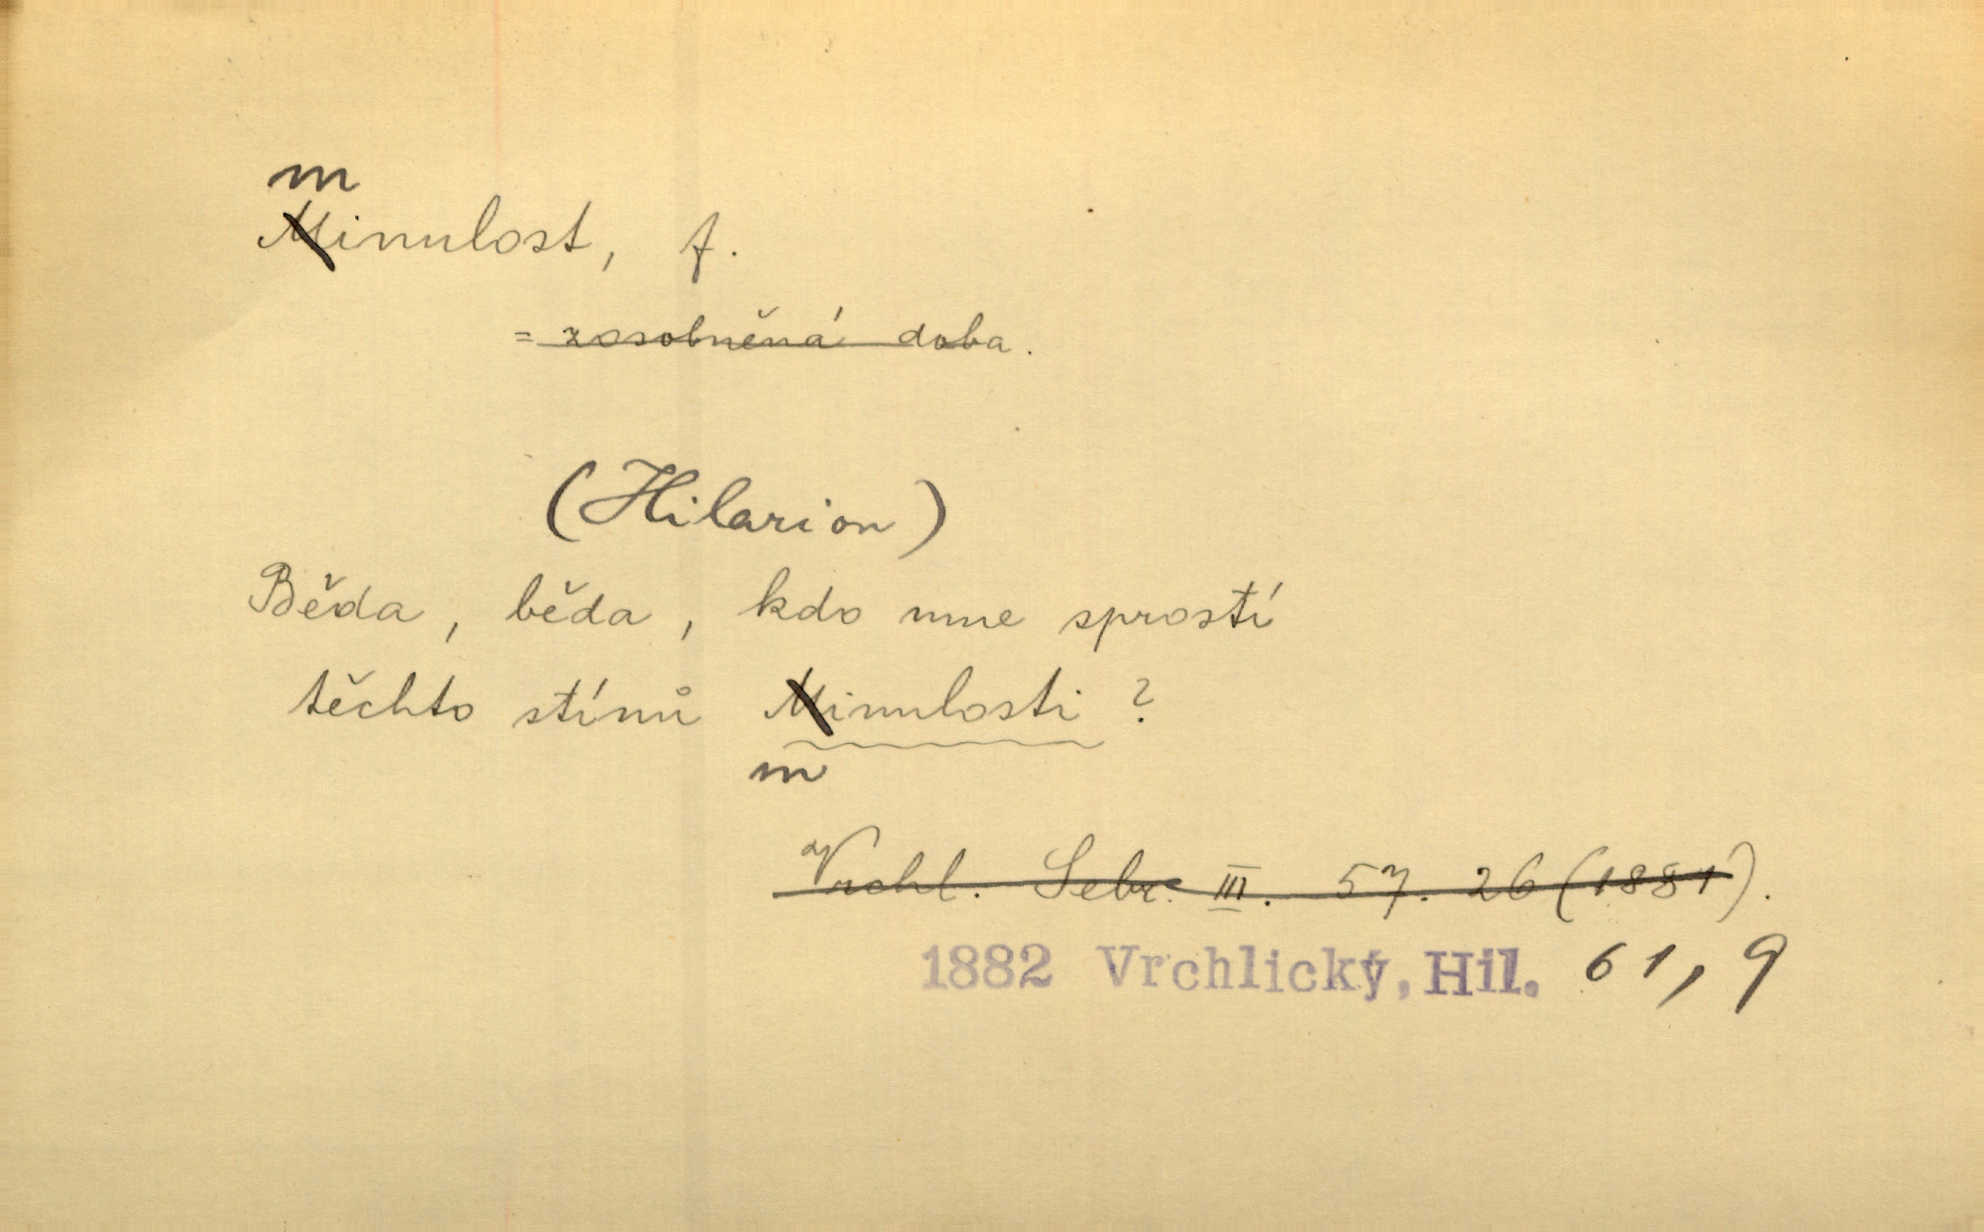 m
Minulost, f.
= zosobněná doba.
(Hilarion)
Běda, běda, kdo mne sprostí
těchto stínů Minulosti?
m
Vrchl. Sebr. III. 57. 26 (1881).
1882 Vrchlický, Hil. 61, 9